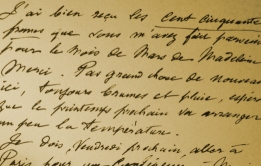 J'ai bien reçu les cent cinquante
francs que vous m'avez fait parvenir
pour le mois de Mars de Madeleine
Merci. Pas grand chose de nouveau
ici, toujours brumes et pluie, espérons
que le printemps prochain va arranger
un peu la température.
Je dois, Vendredi prochain aller à
Paris pour un